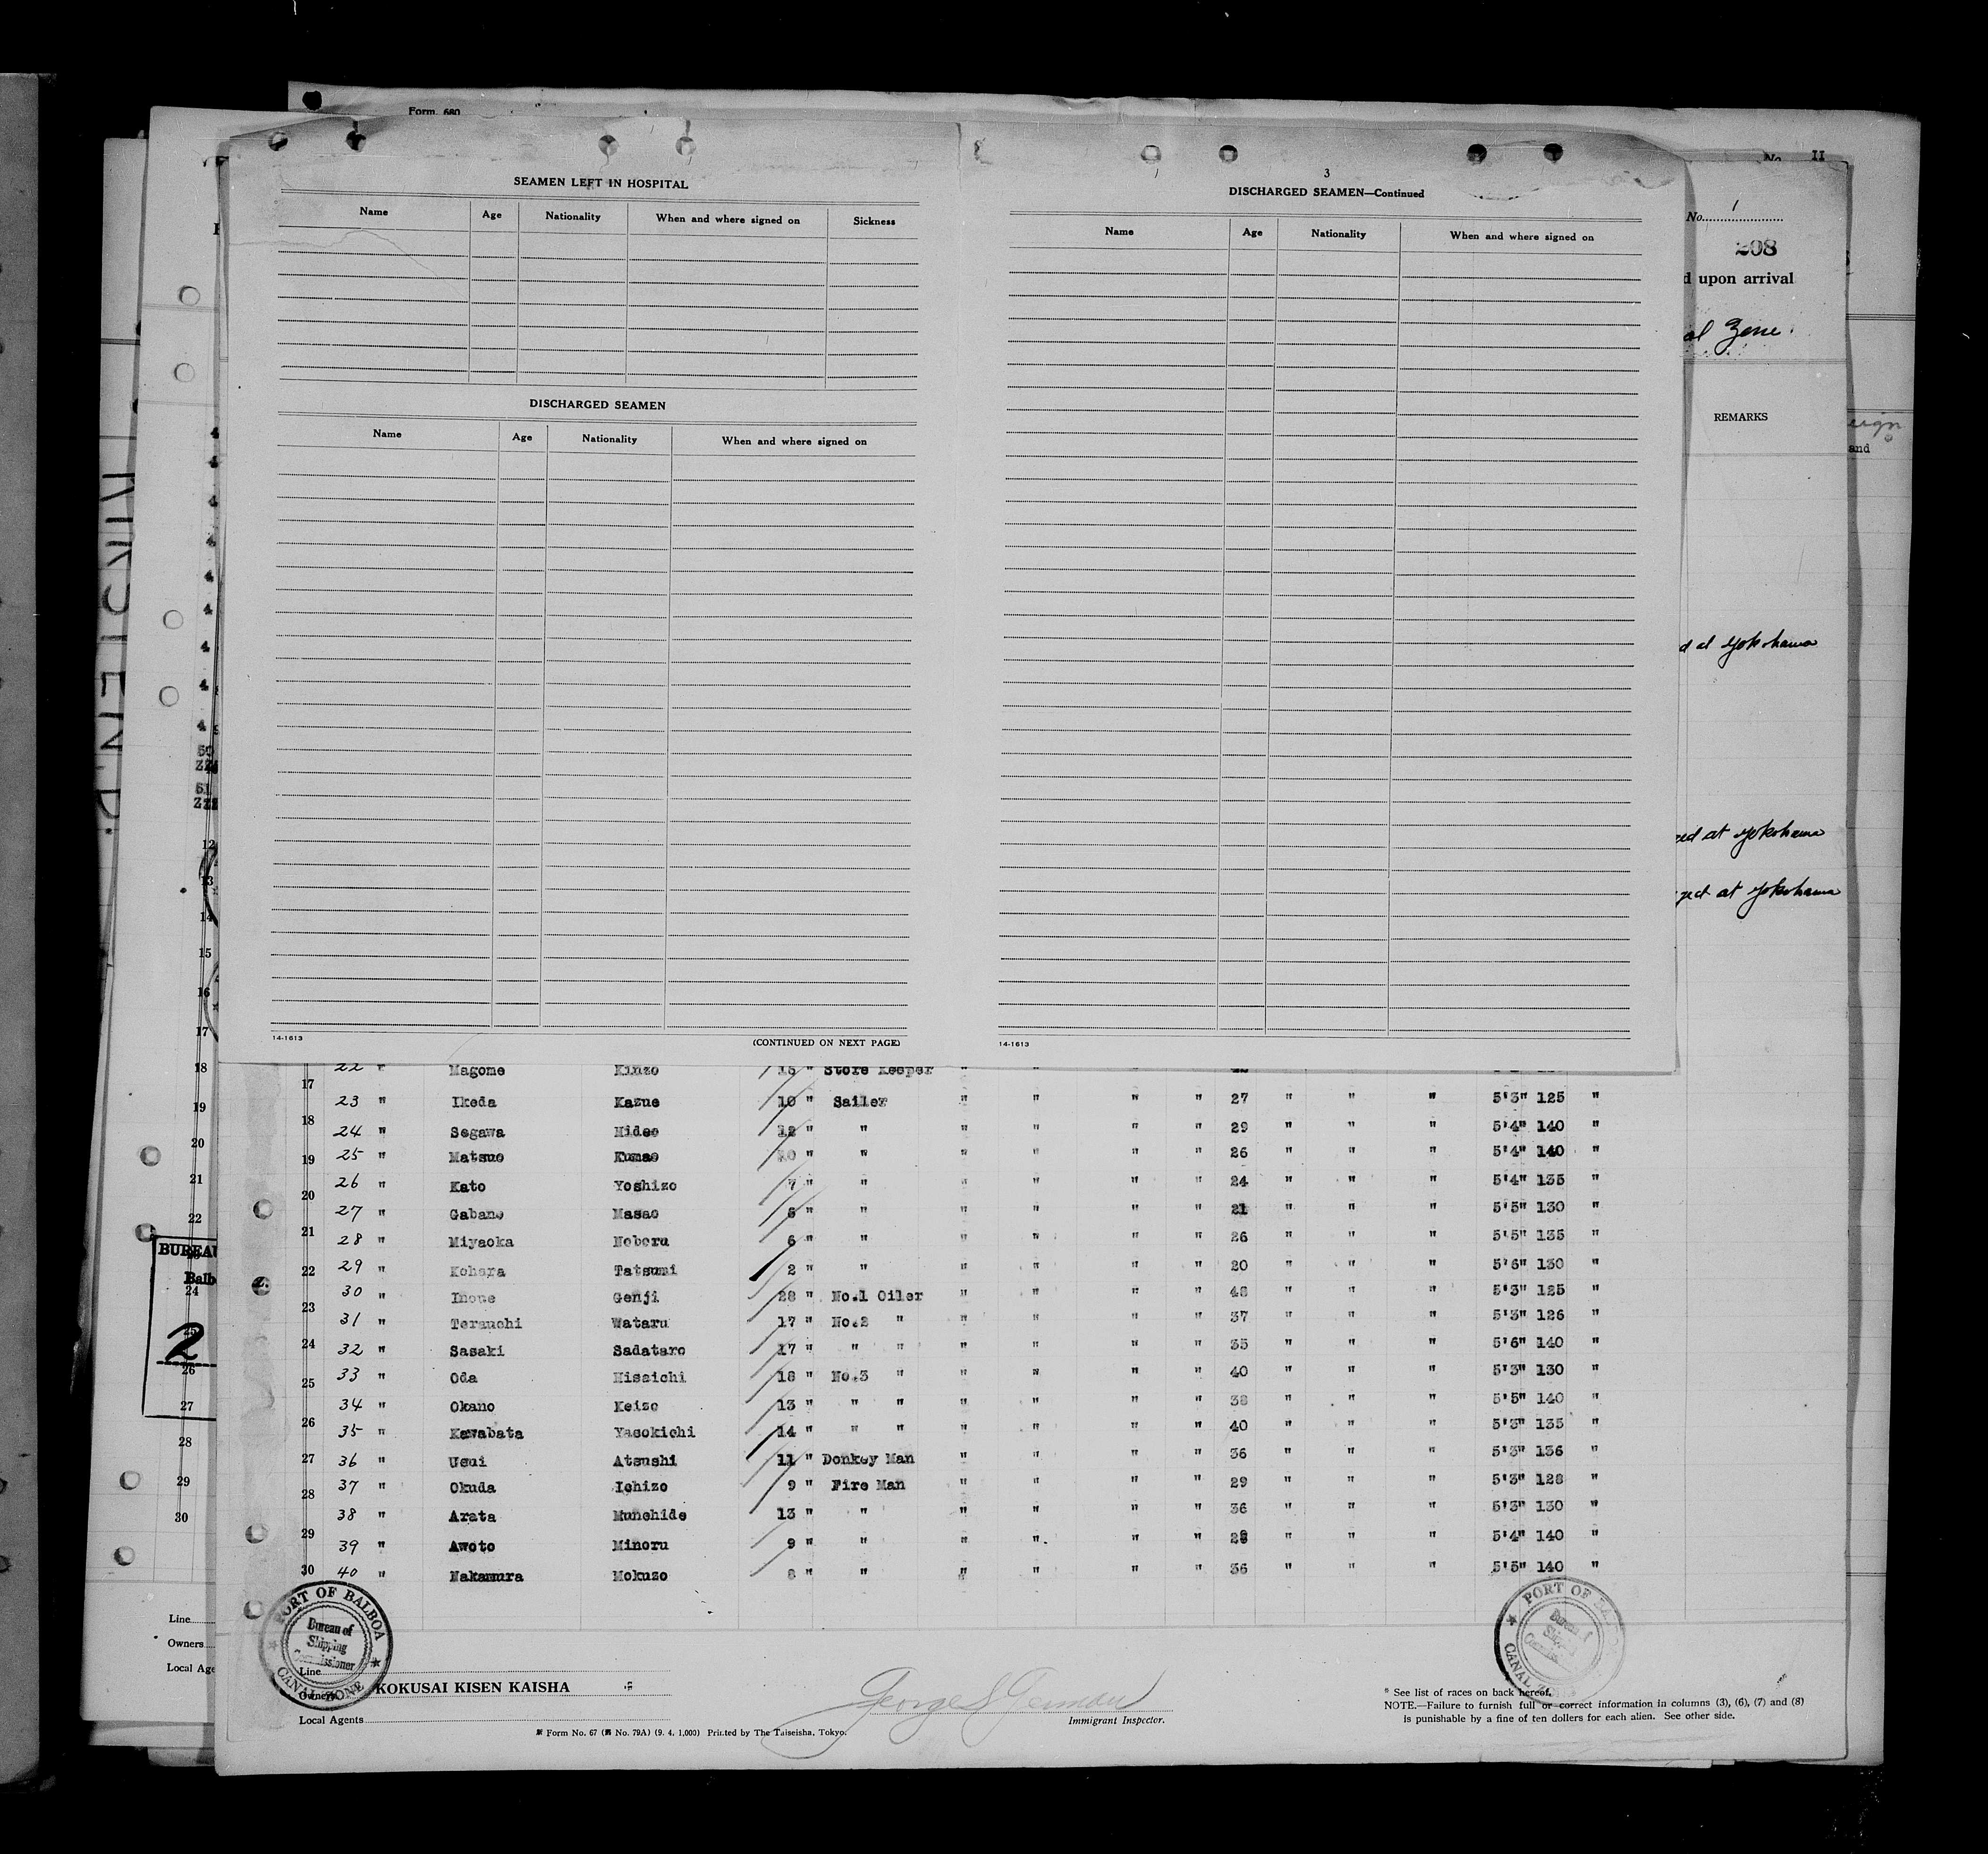 Form 680
No. II
SEAMEN LEFT IN HOSPITAL
Name Age Nationality When and where signed on Sickness
DISCHARGED SEAMEN
Name Age Nationality When and where signed on
14-1613 (CONTINUED ON NEXT PAGE)
3
DISCHARGED SEAMEN—Continued
Name Age Nationality When and where signed on
14-1613
No. 1
208
d upon arrival
al Zone.
REMARKS
and
d at Yokohama
ed at Yokohama
ged at Yokohama
12
13
14
15
16
17
18
19
20
21
22
24
26
27
28
29
30
BUREAU
Balb
2
17 22 " Magome Kinzo 15 " Store Keeper " " " "
23 " Ikeda Kazue 10 " Sailer " " " " 27 " " " 5'3" 125 "
18 24 " Segawa Hideo 12 " " " " " " 29 " " " 5'4" 140 "
19 25 " Matsuo Kumao " " " " " " 26 " " " 5'4" 140 "
20 26 " Kato Yoshizo 7 " " " " " " 24 " " " 5'4" 135 "
27 " Gabano Masao 6 " " " " " " 21 " " " 5'5" 130 "
21 28 " Miyaoka Noboru 6 " " " " " " 26 " " " 5'5" 135 "
22 29 " Kohara Tatsumi 2 " " " " " " 20 " " " 5'6" 130 "
30 " Inoue Genji 28 " No.1 Oiler " " " " 48 " " " 5'3" 125 "
23 31 " Terauchi Wataru 17 " No.2 " " " " " 37 " " " 5'3" 126 "
24 32 " Sasaki Sadataro 17 " " " " " " " 35 " " " 5'6" 140 "
25 33 " Oda Hisaichi 18 " No.3 " " " " " 40 " " " 5'3" 130 "
34 " Okano Keizo 13 " " " " " " " 38 " " " 5'5" 140 "
26 35 " Kawabata Yasokichi 14 " " " " " " " 40 " " " 5'3" 135 "
27 36 " Usui Atsushi 11 " Donkey Man " " " " 36 " " " 5'3" 136 "
28 37 " Okuda Ichizo 9 " Fire Man " " " " 29 " " " 5'3" 128 "
38 " Arata Munehide 13 " " " " " " 36 " " " 5'3" 130 "
29 39 " Awoto Minoru 9 " " " " " " " " " 5'4" 140 "
30 40 " Nakamura Mokuzo 8 " " " " " " 36 " " " 5'5" 140 "
PORT OF BALBOA
Bureau of
Shipping
Commissioner
CANAL ZONE
PORT OF BALBOA
Bureau of
CANAL ZONE
Line
Owners
Local Age
Line
Owners KOKUSAI KISEN KAISHA
Local Agents
George S German
Immigrant Inspector.
* See list of races on back hereof.
NOTE.—Failure to furnish full or correct information in columns (3), (6), (7) and (8)
is punishable by a fine of ten dollars for each alien. See other side.
Form No. 67 ( No. 79A) (9. 4. 1,000) Printed by The Taiseisha, Tokyo.